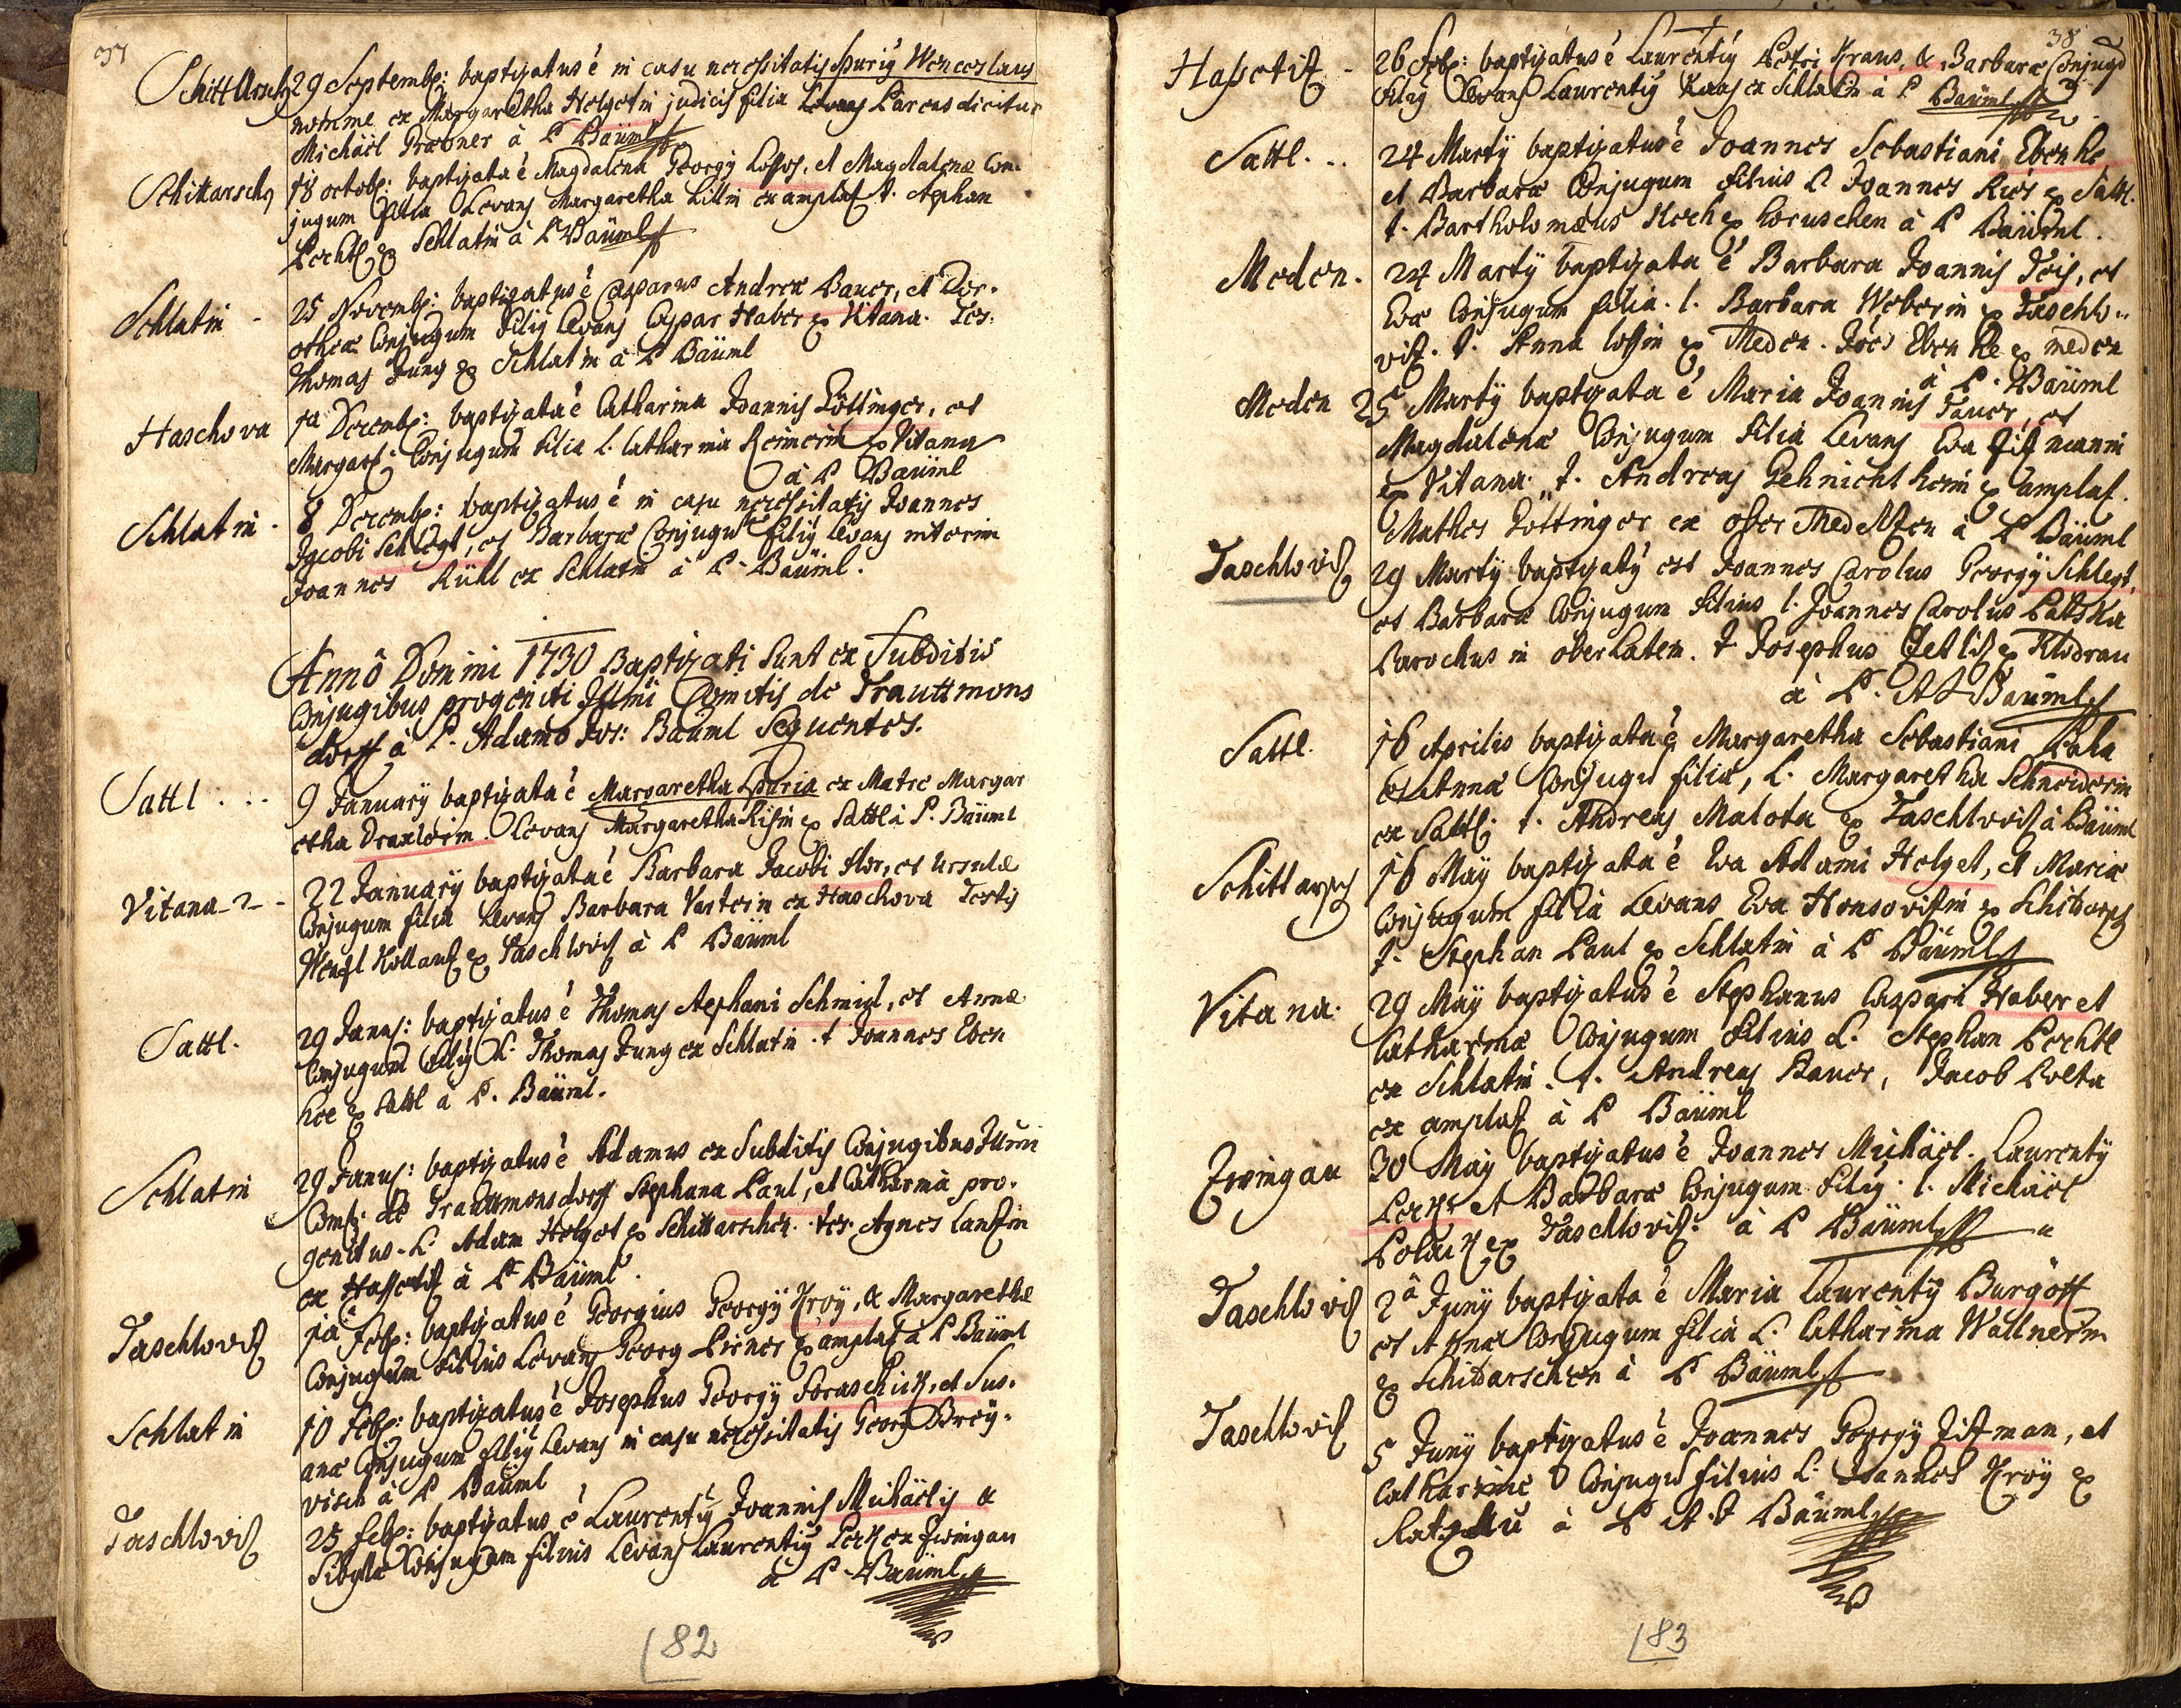 37
Schittarsch 29 Septemb: baptizatus e in casu necessitatis Spurig Wenceslaus
nomine ex Margaretha Holgetin judicis filia Levans Parens dicitur
Michäel Grabner à P Bäüml
Schittarsch 18 octob: baptizata e Magdalena Georgÿ Losos, et Magdalenæ Con-
jugum filia Levans Margaretha Littin ex amplas t. Stephan
Pechtl ex Schlatin à P Bäüml
Schlatin - 25 Novemb: baptizatus e Casparus Andreæ Bauer, et Dor-
otheæ Conjugum filiy Levans Caspar Haber ex Vitana. Tes:
Thomas Jung ex Schlatin à P Bäüml
Haschova 1a Decemb: baptizata e Catharina Joannis Töttinger, et
Margar: Conjugum filia L. Catharina Reimerin ex Vitana
à P Bäüml
Schlatin. 8 Decemb: baptizatus e in casu necessitatis Joannes
Jacobi Schlegl, et Barbaræ Conjugu filiy Levans interim
Joannes Kühl ex Schlatin à P. Bäüml.
Annô Domini 1730 Baptizati Sunt ex Subditis
Conjugibus progeniti Illmi Comitis de Trauttmons
dorff à P. Adamo Jos: Bäüml Sequentes.
Sattl ... 9 Januarÿ baptizata e Margaretha Spuria ex Matre Margar
etha Draxlerin. Levans Margaretha Risin ex Sattl à P. Bäüml
Vitana - 2 - 22 Januarÿ baptizata e Barbara Jacobi Hor, et Ursulæ
Conjugum filia Levans Barbara Vasterin ex Haschova Testis
Wenzl Kollans ex Taschlovis à P Bäüml
Sattl. 29 Janu: baptizatus e Thomas Stephani Schmid, et Annæ
Conjugum filiy L. Thomas Jung ex Schlatin. t Joannes Eben
höe ex Sattl à P. Bäüml.
Schlatin 29 Janu: baptizatus e Adamus ex Subditis Conjugibus Illmi
Comitis de Trauttmonsdorff Stephana Paul, et Catharina pro-
genitus. L. Adam Holget ex Schittarschen. tes. Agnes Lanstin
ex Hassetitz à P Bäüml.
Taschlovis 1a Feb: baptizatus e Georgius Georgÿ Kroÿ, & Margarethæ
Conjugum filius Levans Georg Pirner ex amplas à P Bäüml
Schlatin 10 Feb: baptizatus e Josephus Georgÿ Soraschick, et Sus-
anæ Conjugum filiy Levans in casu necessitatis Georg Breÿ-
visch à P Bäüml
Taschlovis 25 Feb: baptizatus e Laurentÿ Joannis Michäelis &
Sibyllæ Conjugum filius Levans Laurentiy Peck ex Zwingau
à P. Bäüml
82
38
Hasetitz - 26 Feb: baptizatus e Laurentiy Petri Kraus, & Barbaræ Conjugu
filiy Levans Laurentiy Kaas ex Schlatin à P Bäüml
Sattl... 24 Martÿ baptizatus e Joannes Sebastiani Ebenhe
et Barbaræ Conjugum filius L. Joannes Ries ex Sattl.
t. Bartholomæus Hoch ex Horuschen à P Bäüml.
Meden. 24 Martÿ baptizata e Barbara Joannis Leis, et
Eva Conjugum filia. L. Barbara Weberin ex Taschlo-
vis. t. Anna losin ex Meden. Joes Ebenhe ex meden
à P. Bäüml
Meden 25 Martÿ baptizata e Maria Joannis Fauer, et
Magdalenæ Conjugum filia Levans Eva Zitmannin
ex Vitana. t. Andreas Gehnichtheim ex amplas.
Mathes Tottinger ex ober Medelzen à P Bäüml
Taschlovis 29 Martÿ baptizaty est Joannes Carolus Georgÿ Schlegl,
et Barbaræ Conjugum filius L. Joannes Carolus Latzka
Parochus in oberlatem. t Josephus Gehlis ex Khodrau
à P. A J Bäüml
Sattl. 16 Aprilis baptizata e Margaretha Sebastiani Laha
et Annæ Conjugu filia, L. Margaretha Schneiderin
ex Sattl. t. Andreas Malota ex Taschlovis à Bäüml
Schittarsch 16 Maÿ baptizata e Eva Adami Holget, et Maria
Conjugum filia Levans Eva Honsovistin ex Schidorsch
t. Stephan Paul ex Schlatin à P Bäüml
Vitana. 29 Maÿ baptizatus e Stephanus Caspari Haber et
Catharinæ Conjugum filius L. Stephan Pechtl
ex Schlatin. t. Andreas Bauer, Jacob Polta
ex amplas à P Bäüml
Zwingau 30 Maÿ baptizatus e Joannes Michäel. Laurentÿ
Peckr et Barbaræ Conjugum filiy. L. Michäel
Polack ex Taschlovis. à P Bäüml
Taschlovis 2a Junÿ baptizata e Maria Laurentÿ Burgött
et Annæ Conjugum filia L. Catharina Wallnerin
ex Schidarschen à P Bäüml
Taschlovis 5 Junÿ baptizatus e Joannes Georgÿ Zitman, et
Catharinæ Conjugu filius L. Joannes Kroÿ ex
à P A J Bäüml
83